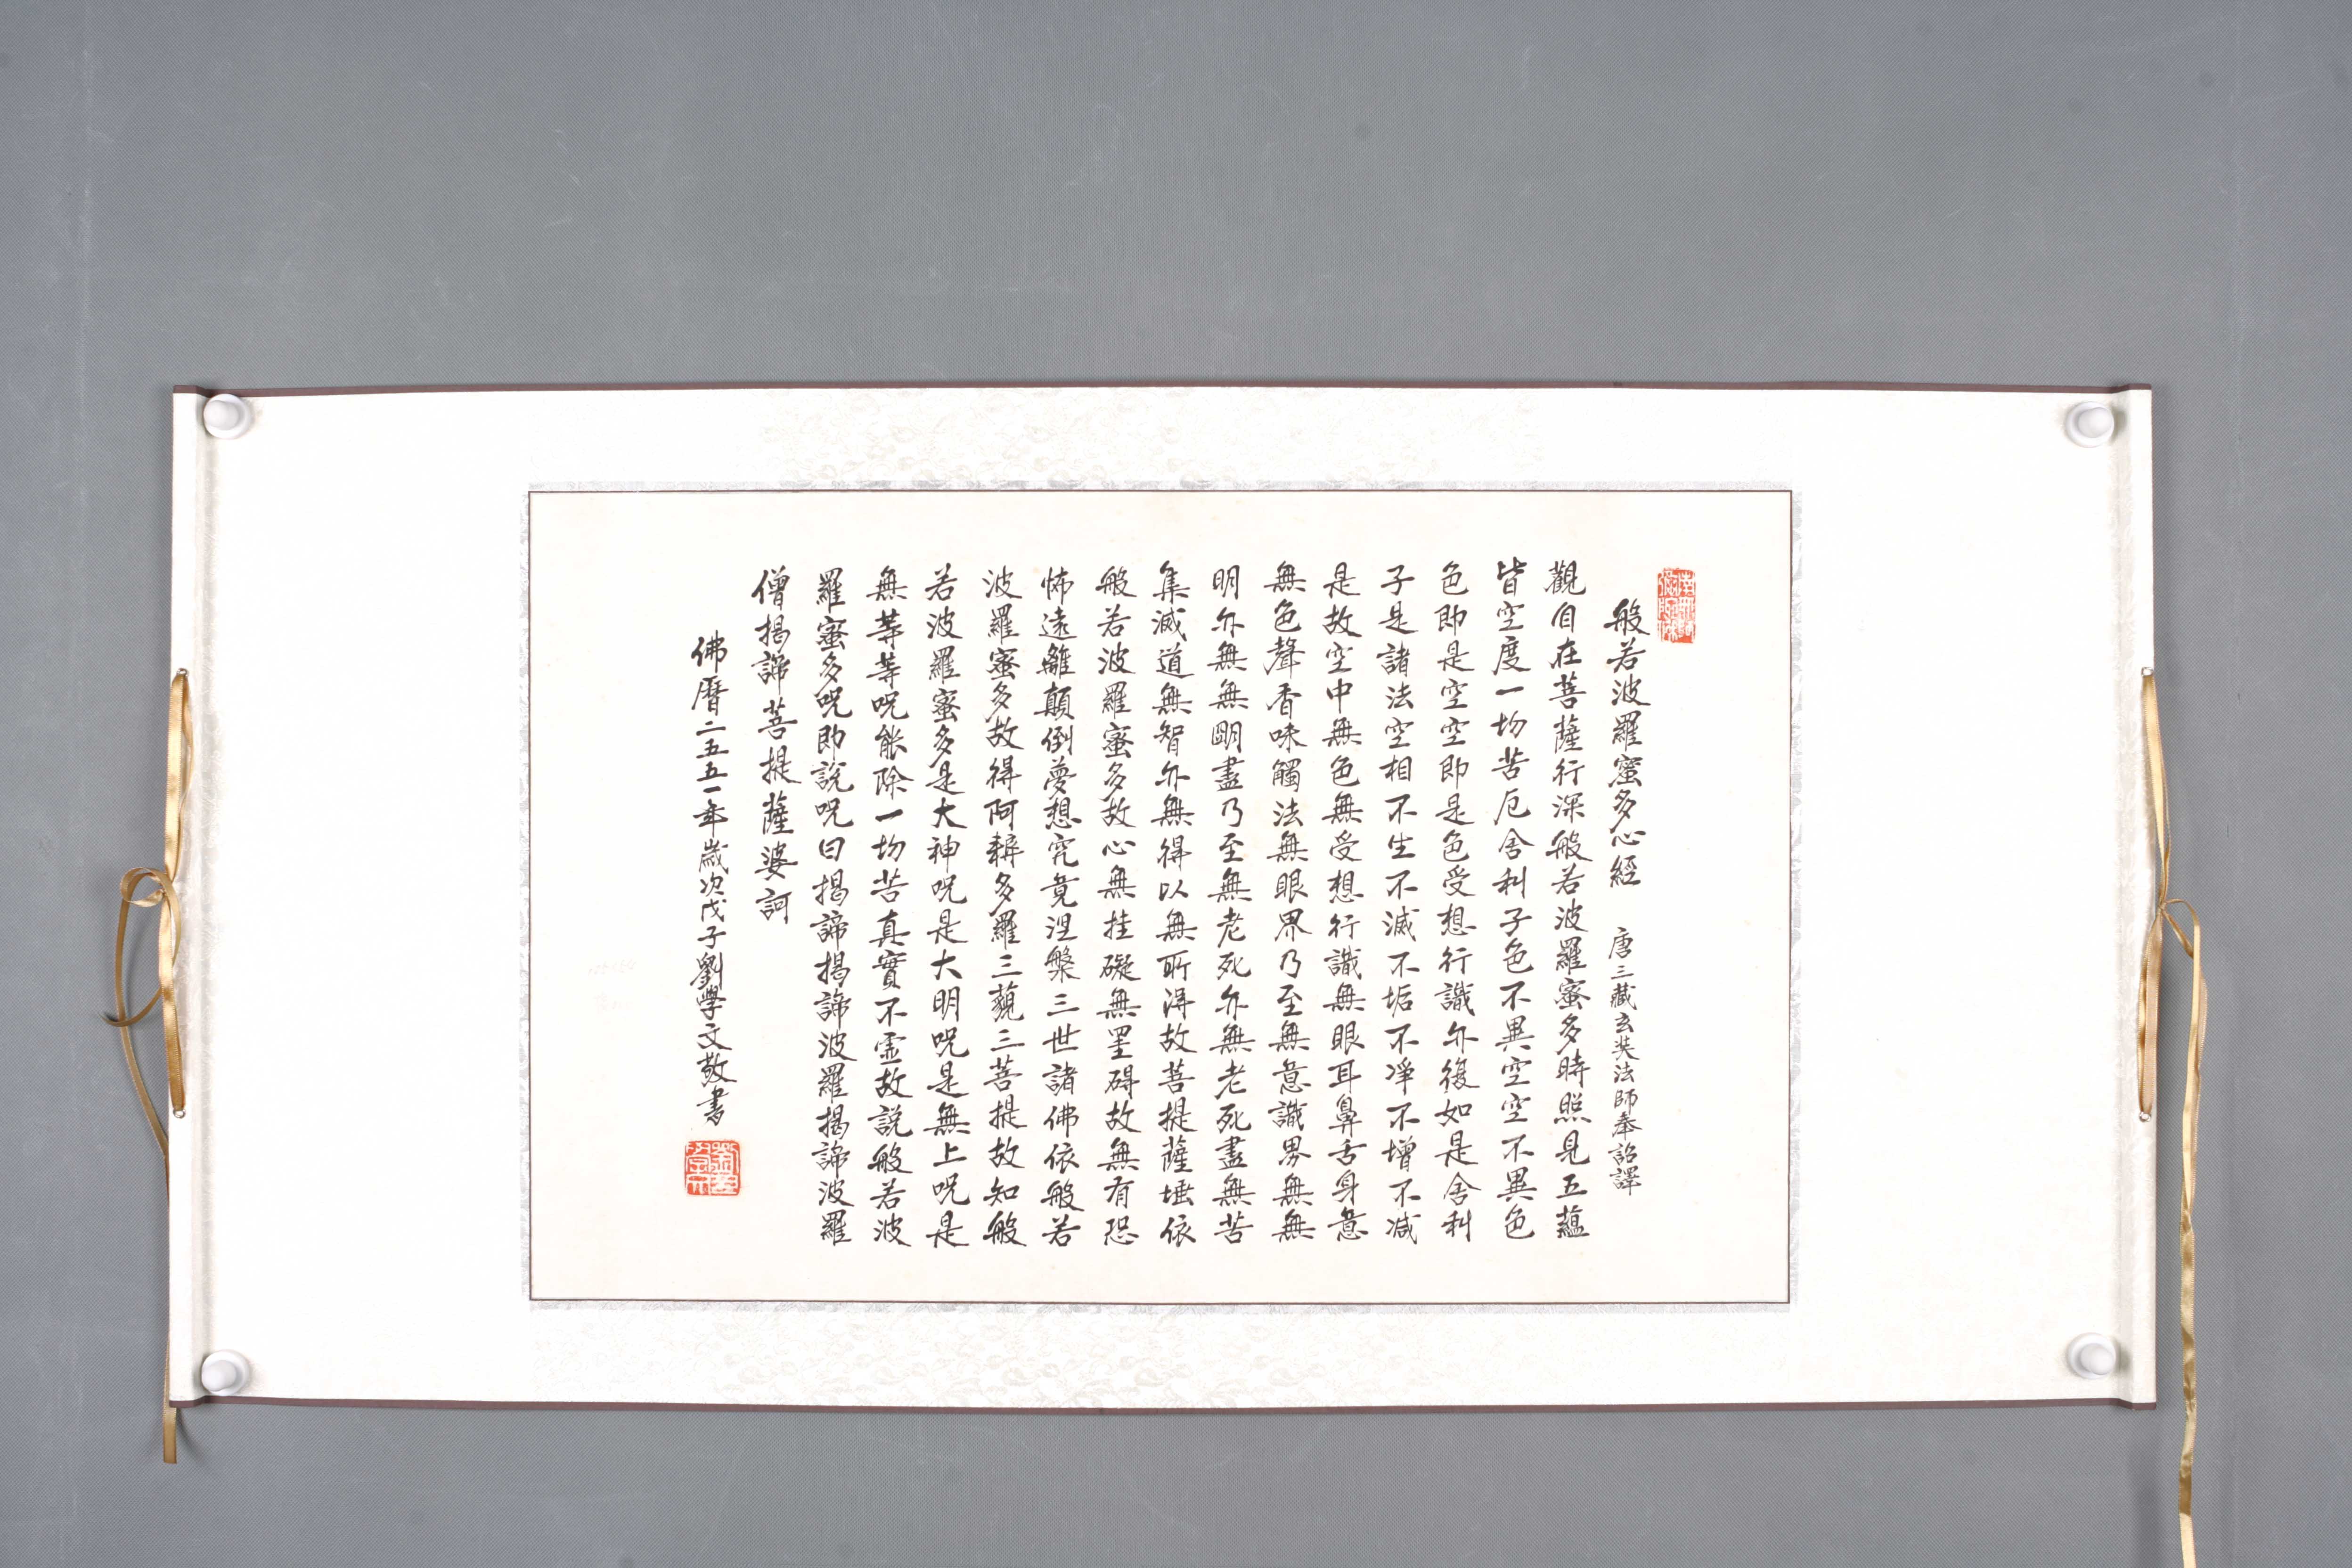 般若波羅蜜多心經 唐三藏玄奘法師奉詔譯
觀自在菩薩行深般若波羅蜜多時照見五蘊
皆空度一切苦厄舍利子色不異空空不異色
色即是空空即是色受想行識亦復如是舍利
子是諸法空相不生不滅不垢不淨不增不減
是故空中無色無受想行識無眼耳鼻舌身意
無色聲香味觸法無眼界乃至無意識界無無
明亦無無明盡乃至無老死亦無老死盡無苦
集滅道無智亦無得以無所得故菩提薩埵依
般若波羅蜜多故心無挂礙無罣碍故無有恐
怖遠離顛倒夢想究竟涅槃三世諸佛依般若
波羅蜜多故得阿耨多羅三藐三菩提故知般
若波羅蜜多是大神呪是大明呪是無上呪是
無等等呪能除一切苦真實不虛故說般若波
羅蜜多呪即說呪曰揭諦揭諦波羅揭諦波羅
僧揭諦菩提薩婆訶
佛曆二五五一年歲次戊子劉學文敬書